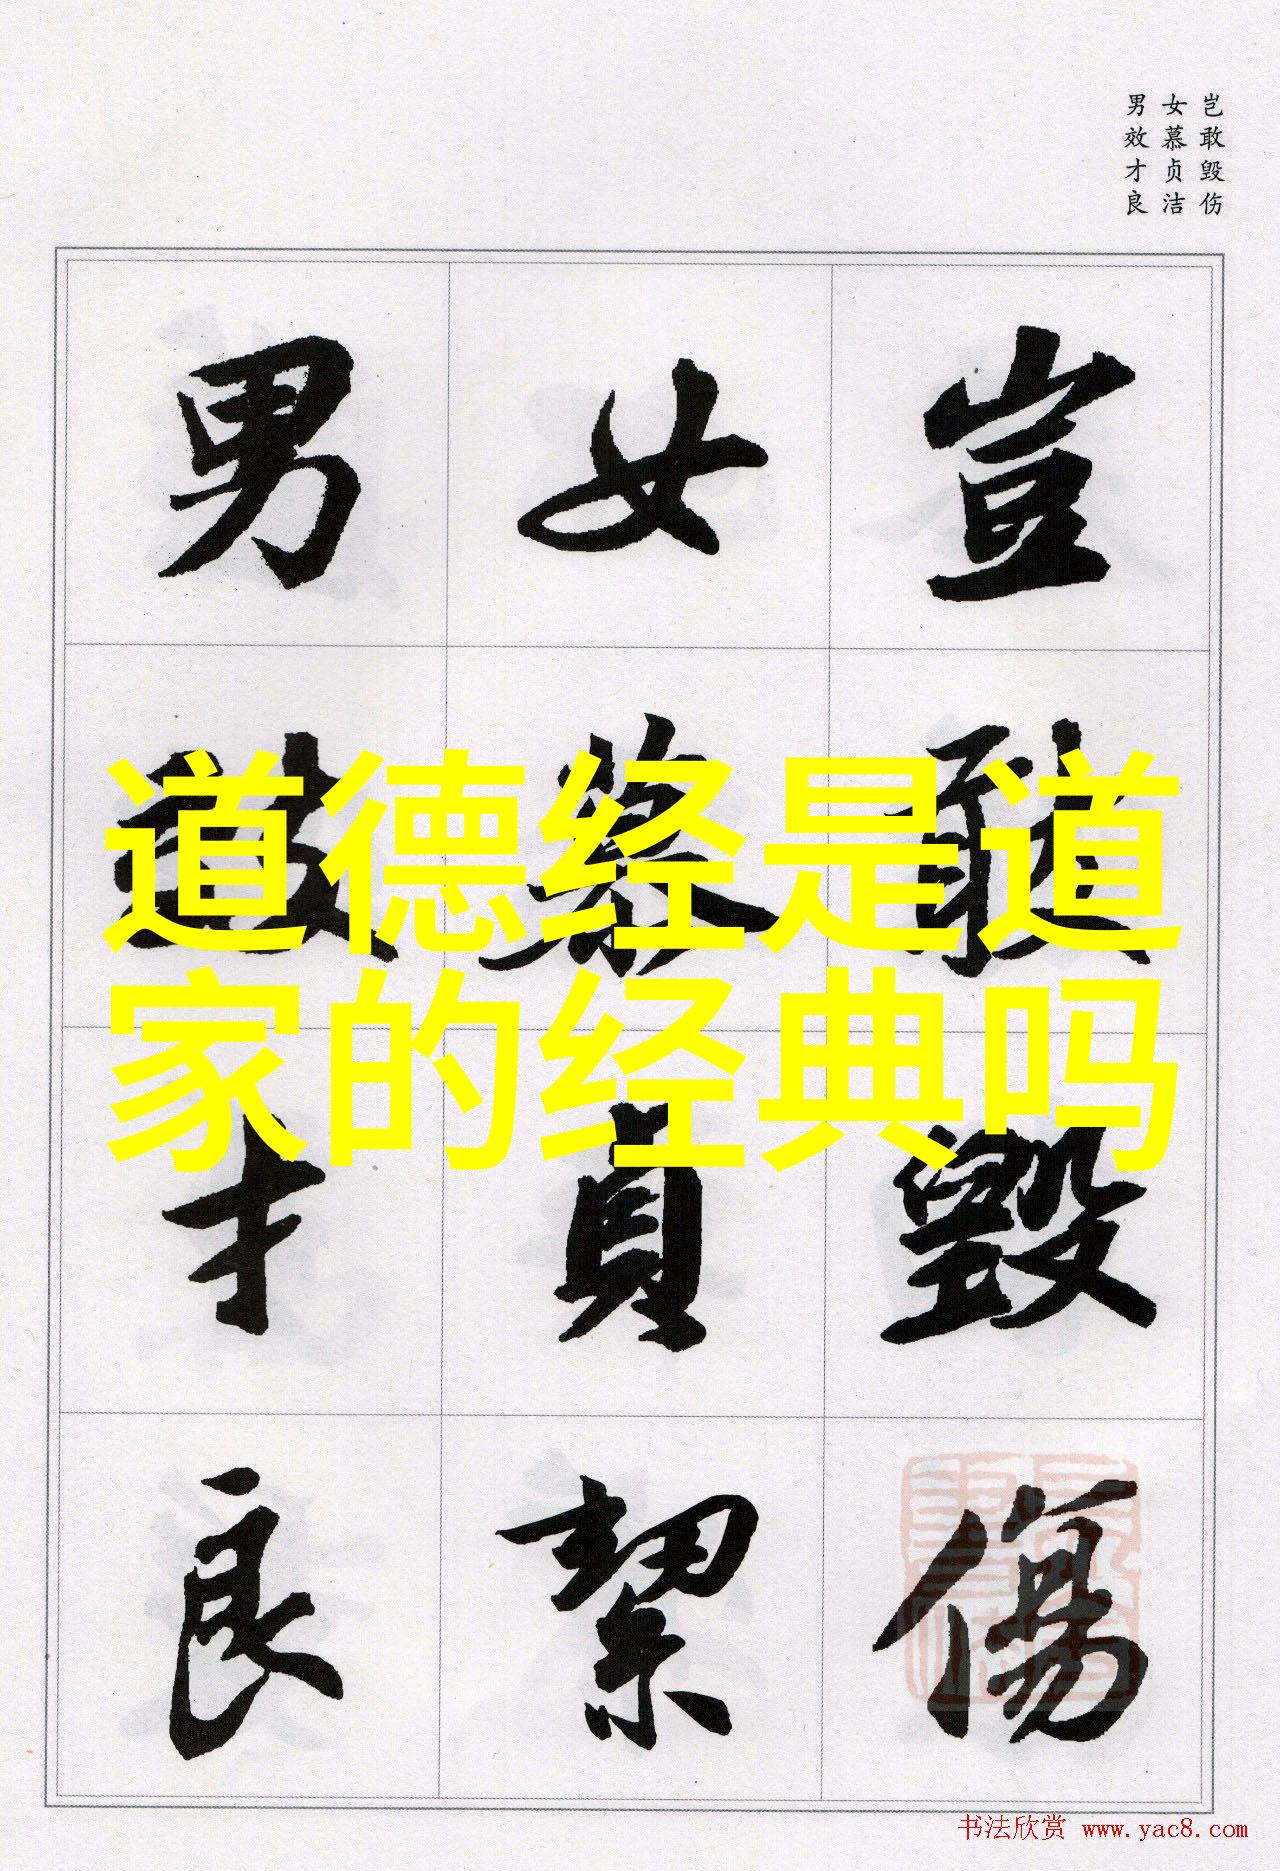 岂敢毁伤
女慕贞洁
男效才良
豈敢毀傷
女慕貞絜
男效才良
道德经是道
家的经典吗
书法欣赏 www.yac8.com